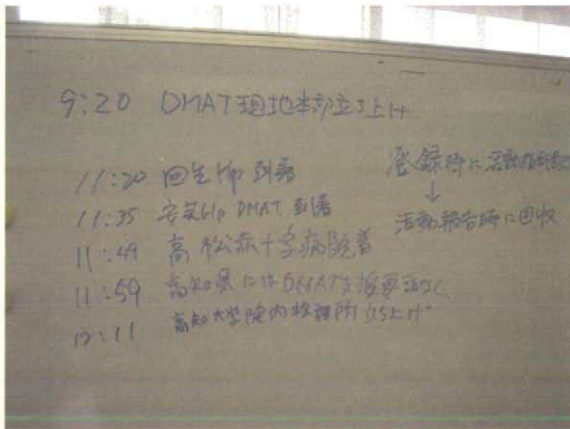 9:20 DMAT現地本部立ち上げ
11:20 回生Hp 到着
11:35 安芸Hp DMAT 到着
11:49 高松赤十字病院着
11:59 高知県にはDMAT支援要請なく
12:11 高知大学院内救護所立ち上げ
登録時に活動指示
↓
活動報告時に回収